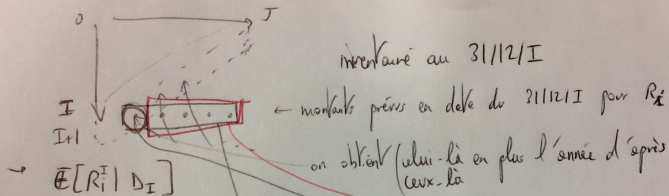 0 J
inventaire au 31/12/I
I ← montants prévus en date du 31/12/I pour R_i
I+1
on obtient (celui-là en plus l'année d'après
ceux-là
→ E[R_i^I | D_I]